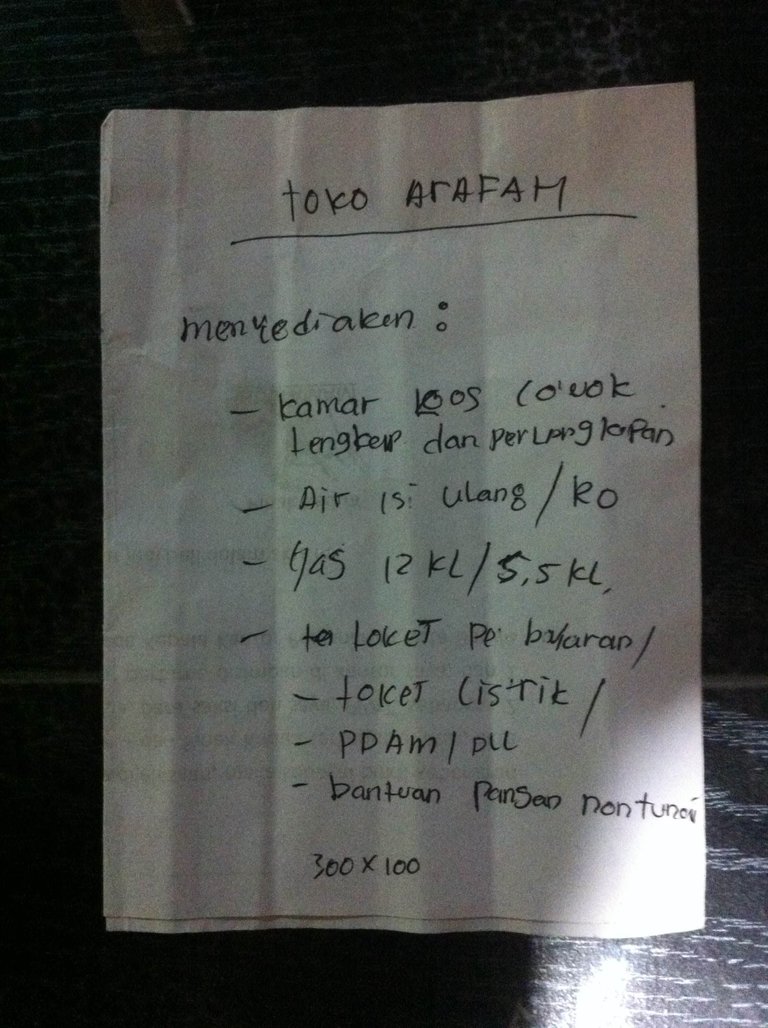 toko ArAFAH
menyediakan :
- kamar kos cowok
lengkap dan perlengkapan
- Air isi ulang / RO
- Gas 12 KL / 5,5 KL,
- LOKET Pe byaran /
- tOKET LISTRIK /
- PDAM / DLL
- bantuan pangan nontunai
300 x 100